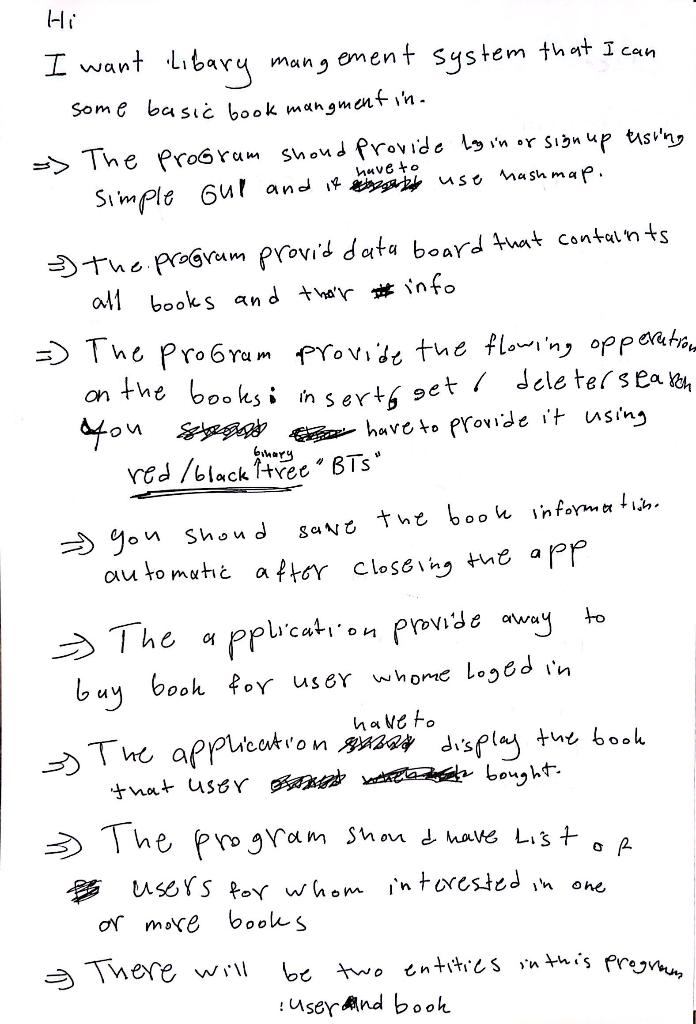 Hi
I want Libary mangement system that I can
some basic book mangment in.
=> The proGram shoud provide login or signup using
simple GUI and it have to use hashmap.
=> the.proGram provid data board that containts
all books and their info
=> The proGram provide the flowing opperation
on the books: insert, get, delete, search
you have to provide it using
red/black binary tree "BTs"
=> you shoud save the book information.
automatic after closeing the app
=> The application provide away to
buy book for user whome loged in
=> The application have to display the book
that user bought.
=> The program shoud have List of
users for whom interested in one
or more books
=> There will be two entities in this program
: user and book